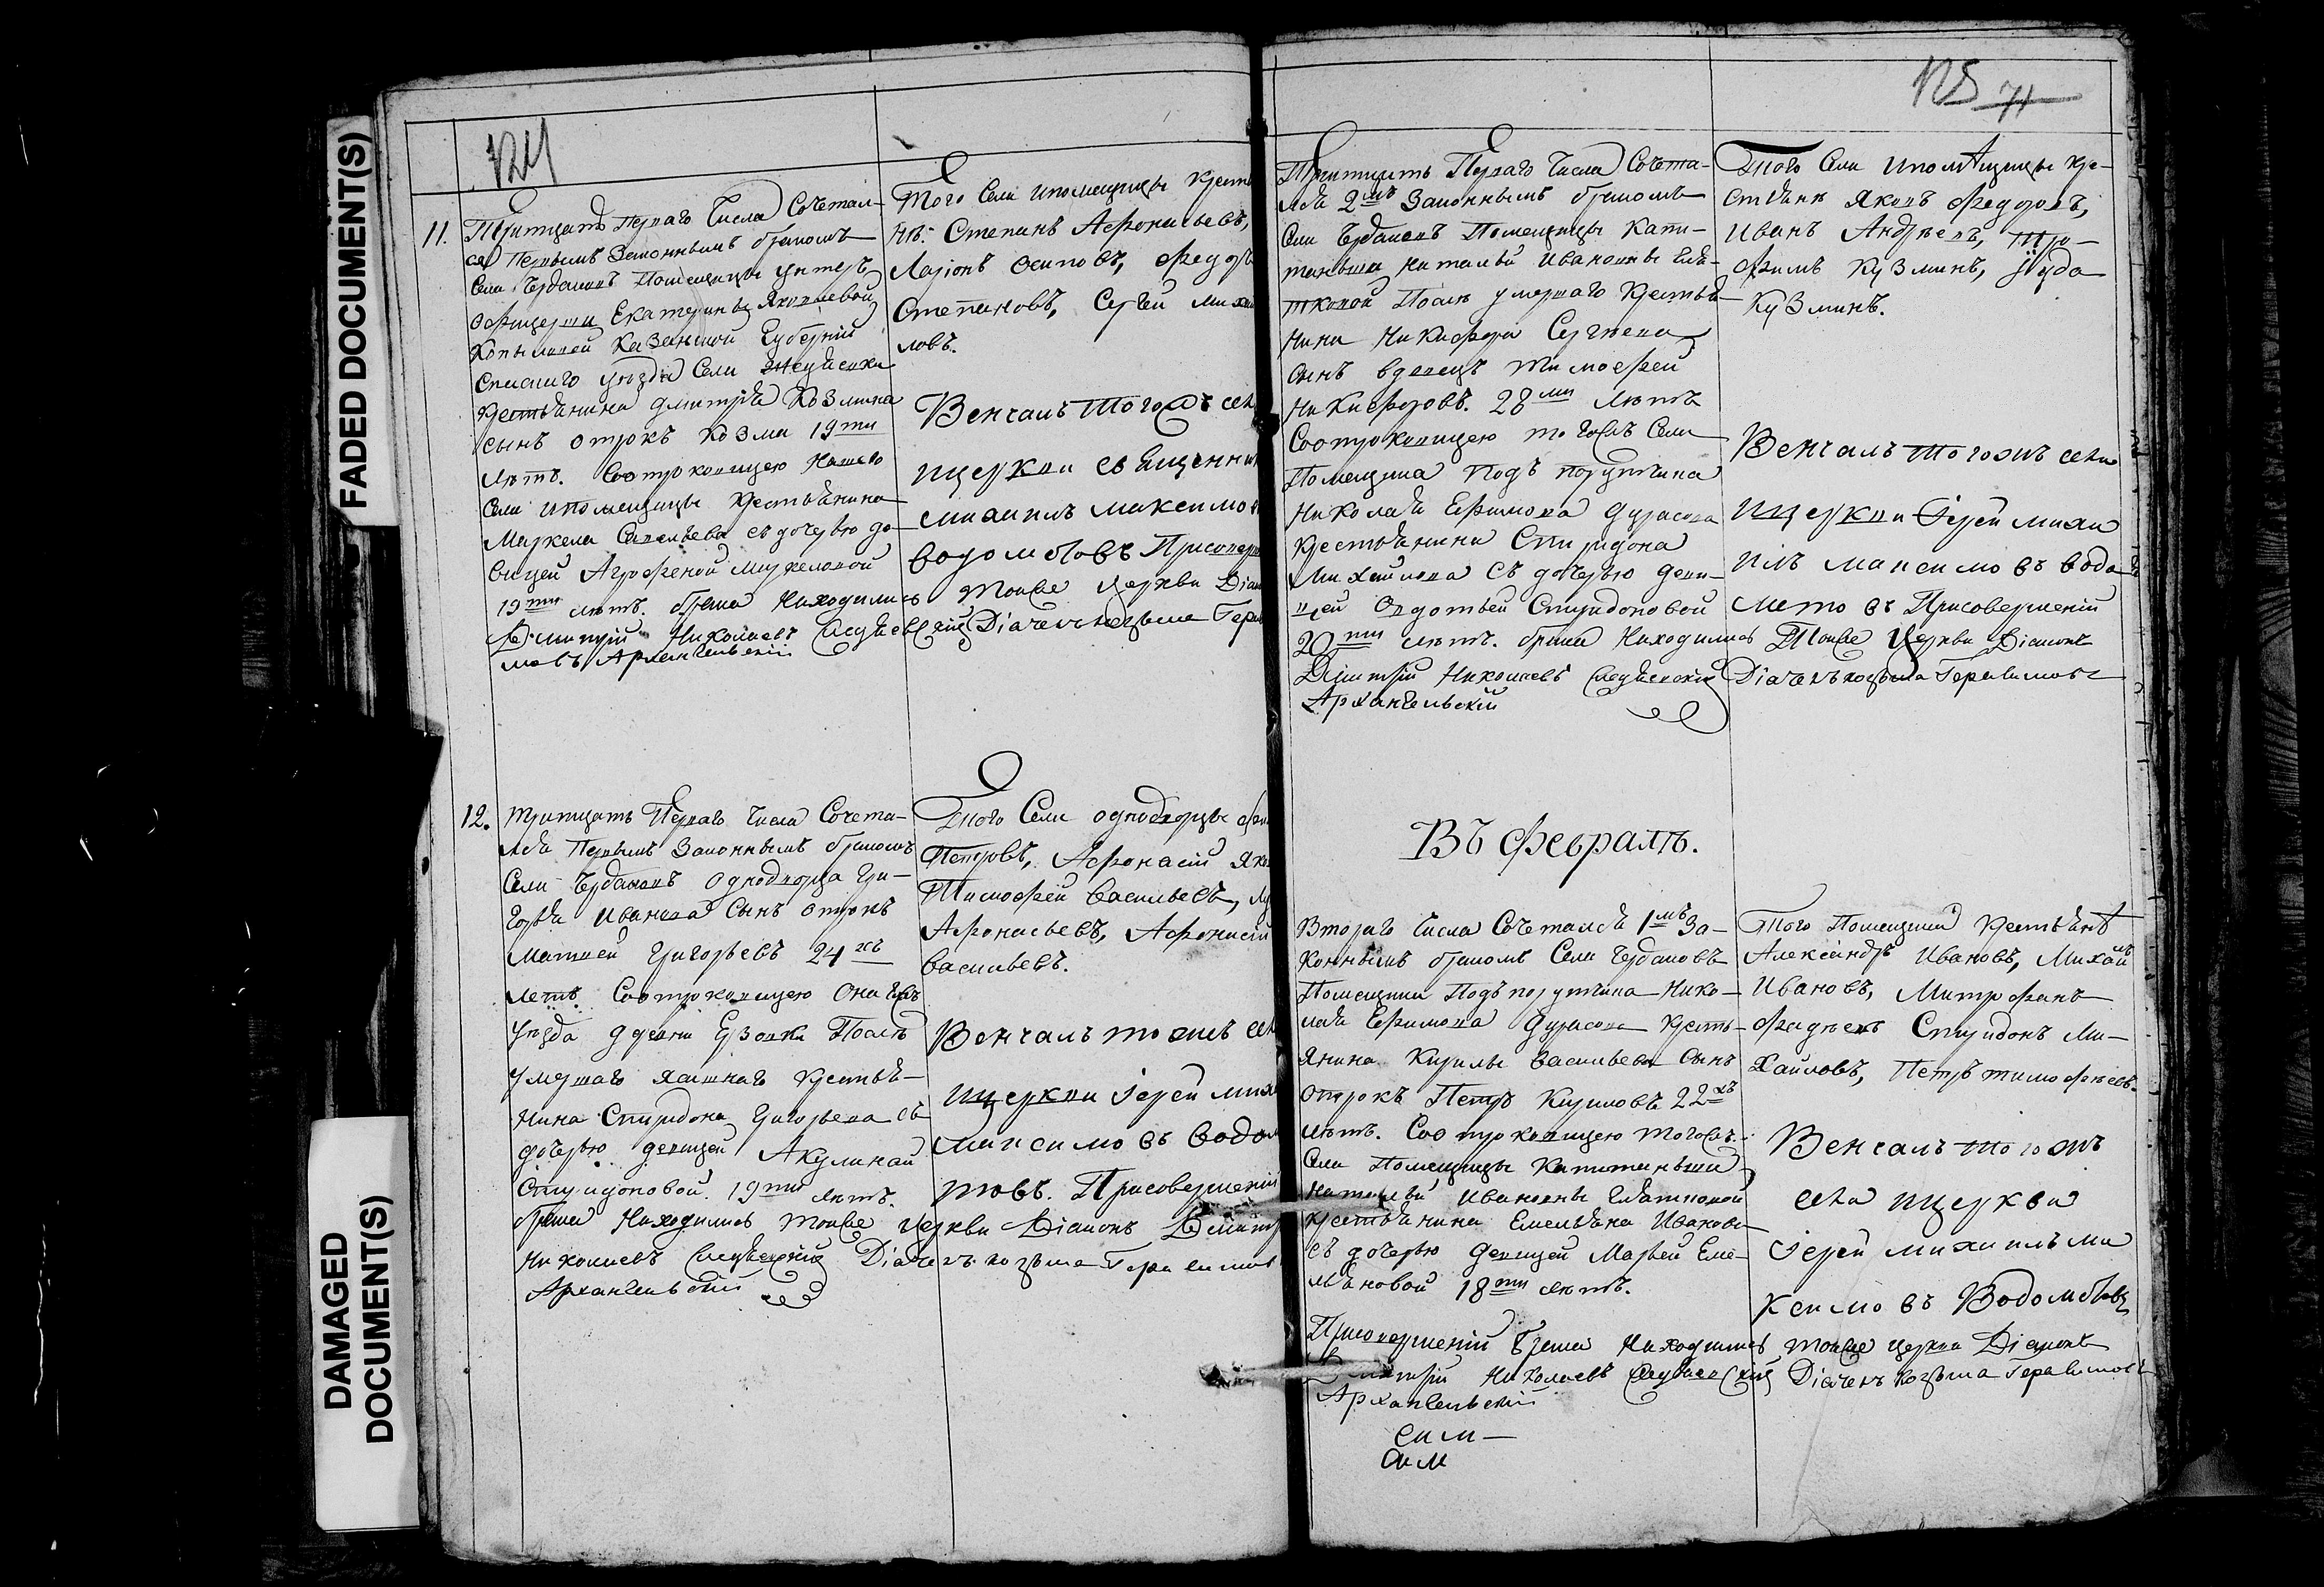 FADED DOCUMENT(S)
DAMAGED
DOCUMENT(S)
124
11.
Притцать перваго Числа Сочетал-
ся Первымъ Законнымъ бракомъ
Села Чердаковъ Помещицы унтеръ
офицерши Екатерины Яковлевой
Казанской Губерніи
Спаскаго уезда Села
крестьянина дмитрія Козмина
сынъ отрокъ Козма 19ти
летъ. Соотроковицею нашего
Села ипомещицы Крестьянина
Маркела Савельева съ дочерью де-
вицей Агрофеной Маркеловой
19ти летъ. брака находились
Дмитрій Николаевъ
мовъ Архангельскій
Того Села ипомещицы крестья
нѣ: Степанъ Афонасьевъ,
Ларіонъ Осиповъ, Федоръ
Степановъ, Сергей михаи
ловъ.
Венчалъ тогожъ села
ицеркви священникъ
михаилъ максимовъ
водолѣтовъ Присовер
тоиже церкви Діак
Діачекъ козьма Гера
12.
тритцать Перваго Числа Сочета-
лся Первымъ Законнымъ бракомъ
Села Чердаковъ Однодворца Гри-
горья Иванова Сынъ отрокъ
Матвей Григорьевъ 24хъ
летъ Соотроковицею Онагожъ
уезда деревни Ерзовки После
умершаго яшнаго крестья-
нина Спиридона Григорьева съ
дочерью девицей Акулиной
Спиридоновой. 19ти летъ.
брака Находились тоиже церкви Діаконъ Дмитр
Николаевъ Діачекъ козьма Герасимовъ
Архангельскій
Того Села однодворцы
Петровъ, Афонасій Яко
Тимофей Васильевъ,
Афонасьевъ, Афонасій
Васильевъ.
Венчалъ тожъ села
ицеркви Іерей миха
максимовъ водолѣ
товъ. Присовершеніи
125 71
Притцать Перваго Числа Сочета-
лся 2мъ Законнымъ бракомъ
Села Чердаковъ Помещицы Капи-
таньши Натальи Ивановны
После умершаго Крестья-
нина Никифора Сергеева
сынъ вдовецъ Тимофей
Никифоровъ. 28ми летъ
Соотроковицею тогожъ Села
Помещика Подъ порутчика
Николая Ефимова Дурасова
Крестьянина Спиридона
Михайлова съ дочерью деви-
цей Овдотьей Спиридоновой
20ти летъ. брака Находились тоиже Церкви Діаконъ
Дмитрій Николаевъ Діачекъ козьма Герасимовъ
Архангельскій
Того Села ипомещицы Кре-
стьянѣ Яковъ Федоровъ,
Иванъ Андреевъ, Тро-
фимъ Кузминъ, Іуда
Кузминъ.
Венчалъ тогожъ села
ицеркви Іерей миха
илъ максимовъ водо
летовъ Присовершеніи
Въ Февралѣ.
Втораго Числа Сочетался 1мъ За-
коннымъ бракомъ Села Чердаковъ
Помещика Подъ порутчика Нико-
лая Ефимова Дурасова Кресть-
янина Кирилы Васильева Сынъ
отрокъ Петръ Кириловъ 22хъ
летъ. Соотроковицею тогожъ
Села Помещицы Капитаньши
Натальи Ивановны
крестьянина Емельяна Иванова
съ дочерью девицей Марьей Еме-
льяновой 18ти летъ.
Присовершеніи брака Находились тоиже церкви Діаконъ
Дмитрій Николаевъ Діачекъ козьма Герасимовъ
Архангельскій
Того Помещика Крестьянѣ
Александръ Ивановъ, Михайла
Ивановъ, Митрофанъ
Фадеевъ Спиридонъ Ми-
хайловъ, Петръ тимофеевъ.
Венчалъ тогожъ
села ицеркви
Іерей михаилъ ма
ксимовъ Водолѣтовъ